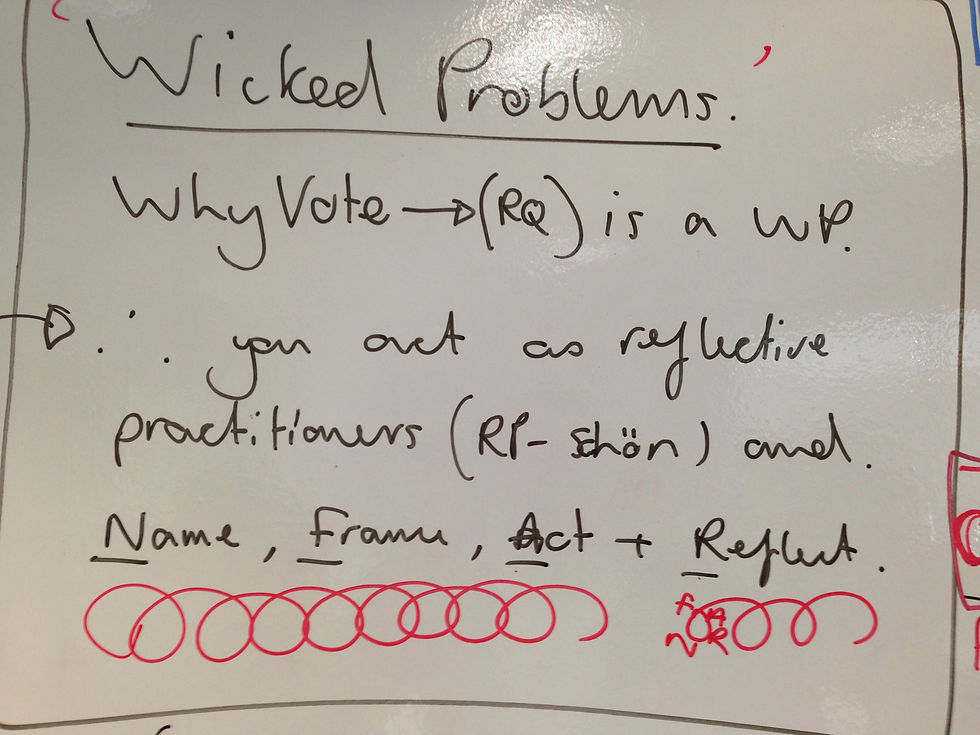 'Wicked Problems.'
Why Vote → (RQ) is a WP.
∴ you act as reflective
practitioners (RP- Schön) and.
Name, Frame, Act + Reflect.
F A
N R